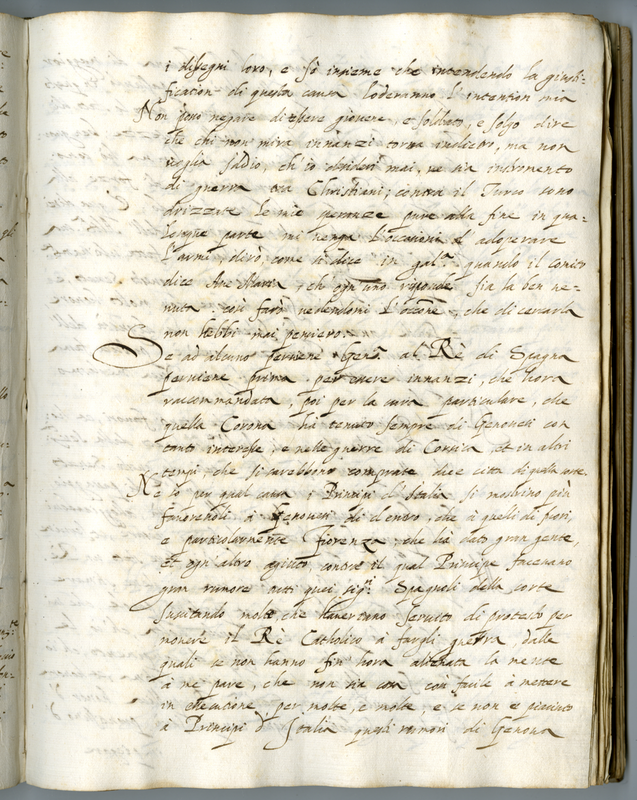 i dissegni loro, e sò insieme che intendendo la giusti-
fication di questa causa loderanno l'intention mia
Non posso negare di essere giovene, et soldato, e soglio dire
che chi non mira innanzi torna indietro, ma non
voglia Iddio, ch'io desideri mai, ne sia instromento
di guerra tra Christiani; contra il Turco sono
drizzate le mie speranze pure alla fine in qua-
lonque parte mi venga l'occasione d'adoperare
l'armi, dirò, come si dice in gal.ª quando il comito
dice Ave Maria, ch'ogn'uno risponde sia la ben ve-
nuta, così farò vedendomi l'occone, che di cercarla
non hebbi mai pensiero.
Se ad alcuno serviene Genª al Rè di Spagna
serviene prima per havere innanzi, che hora
raccommandata, poi per la cura particulare, che
quella Corona ha tenuto sempre di Genovesi con
tanto interesse, e nelle guerre di Corsica, et in altri
tempi, che si sarebbono comprate due città di quella sorte
Ne so per qual causa i Principi d'Italia si mostrino più
favorevoli à Genovesi di dentro, che à quelli di fuori,
e particolarmente Fiorenza, che hà dato gran gente,
et ogn'altro agiuto, contra il qual Principe facevano
gran rumore tutti quei sigri Spagnoli della corte
suscitando molte che havevano servito di protesto per
movere il Rè Catholico à fargli guerra, dalle
quali se non hanno fin'hora alienata la mente
à me pare, che non sia cosa così facile à mettere
in essecutione per molte, e molte, e se non è piaciuto
à Principi d'Italia questi rumori di Genova